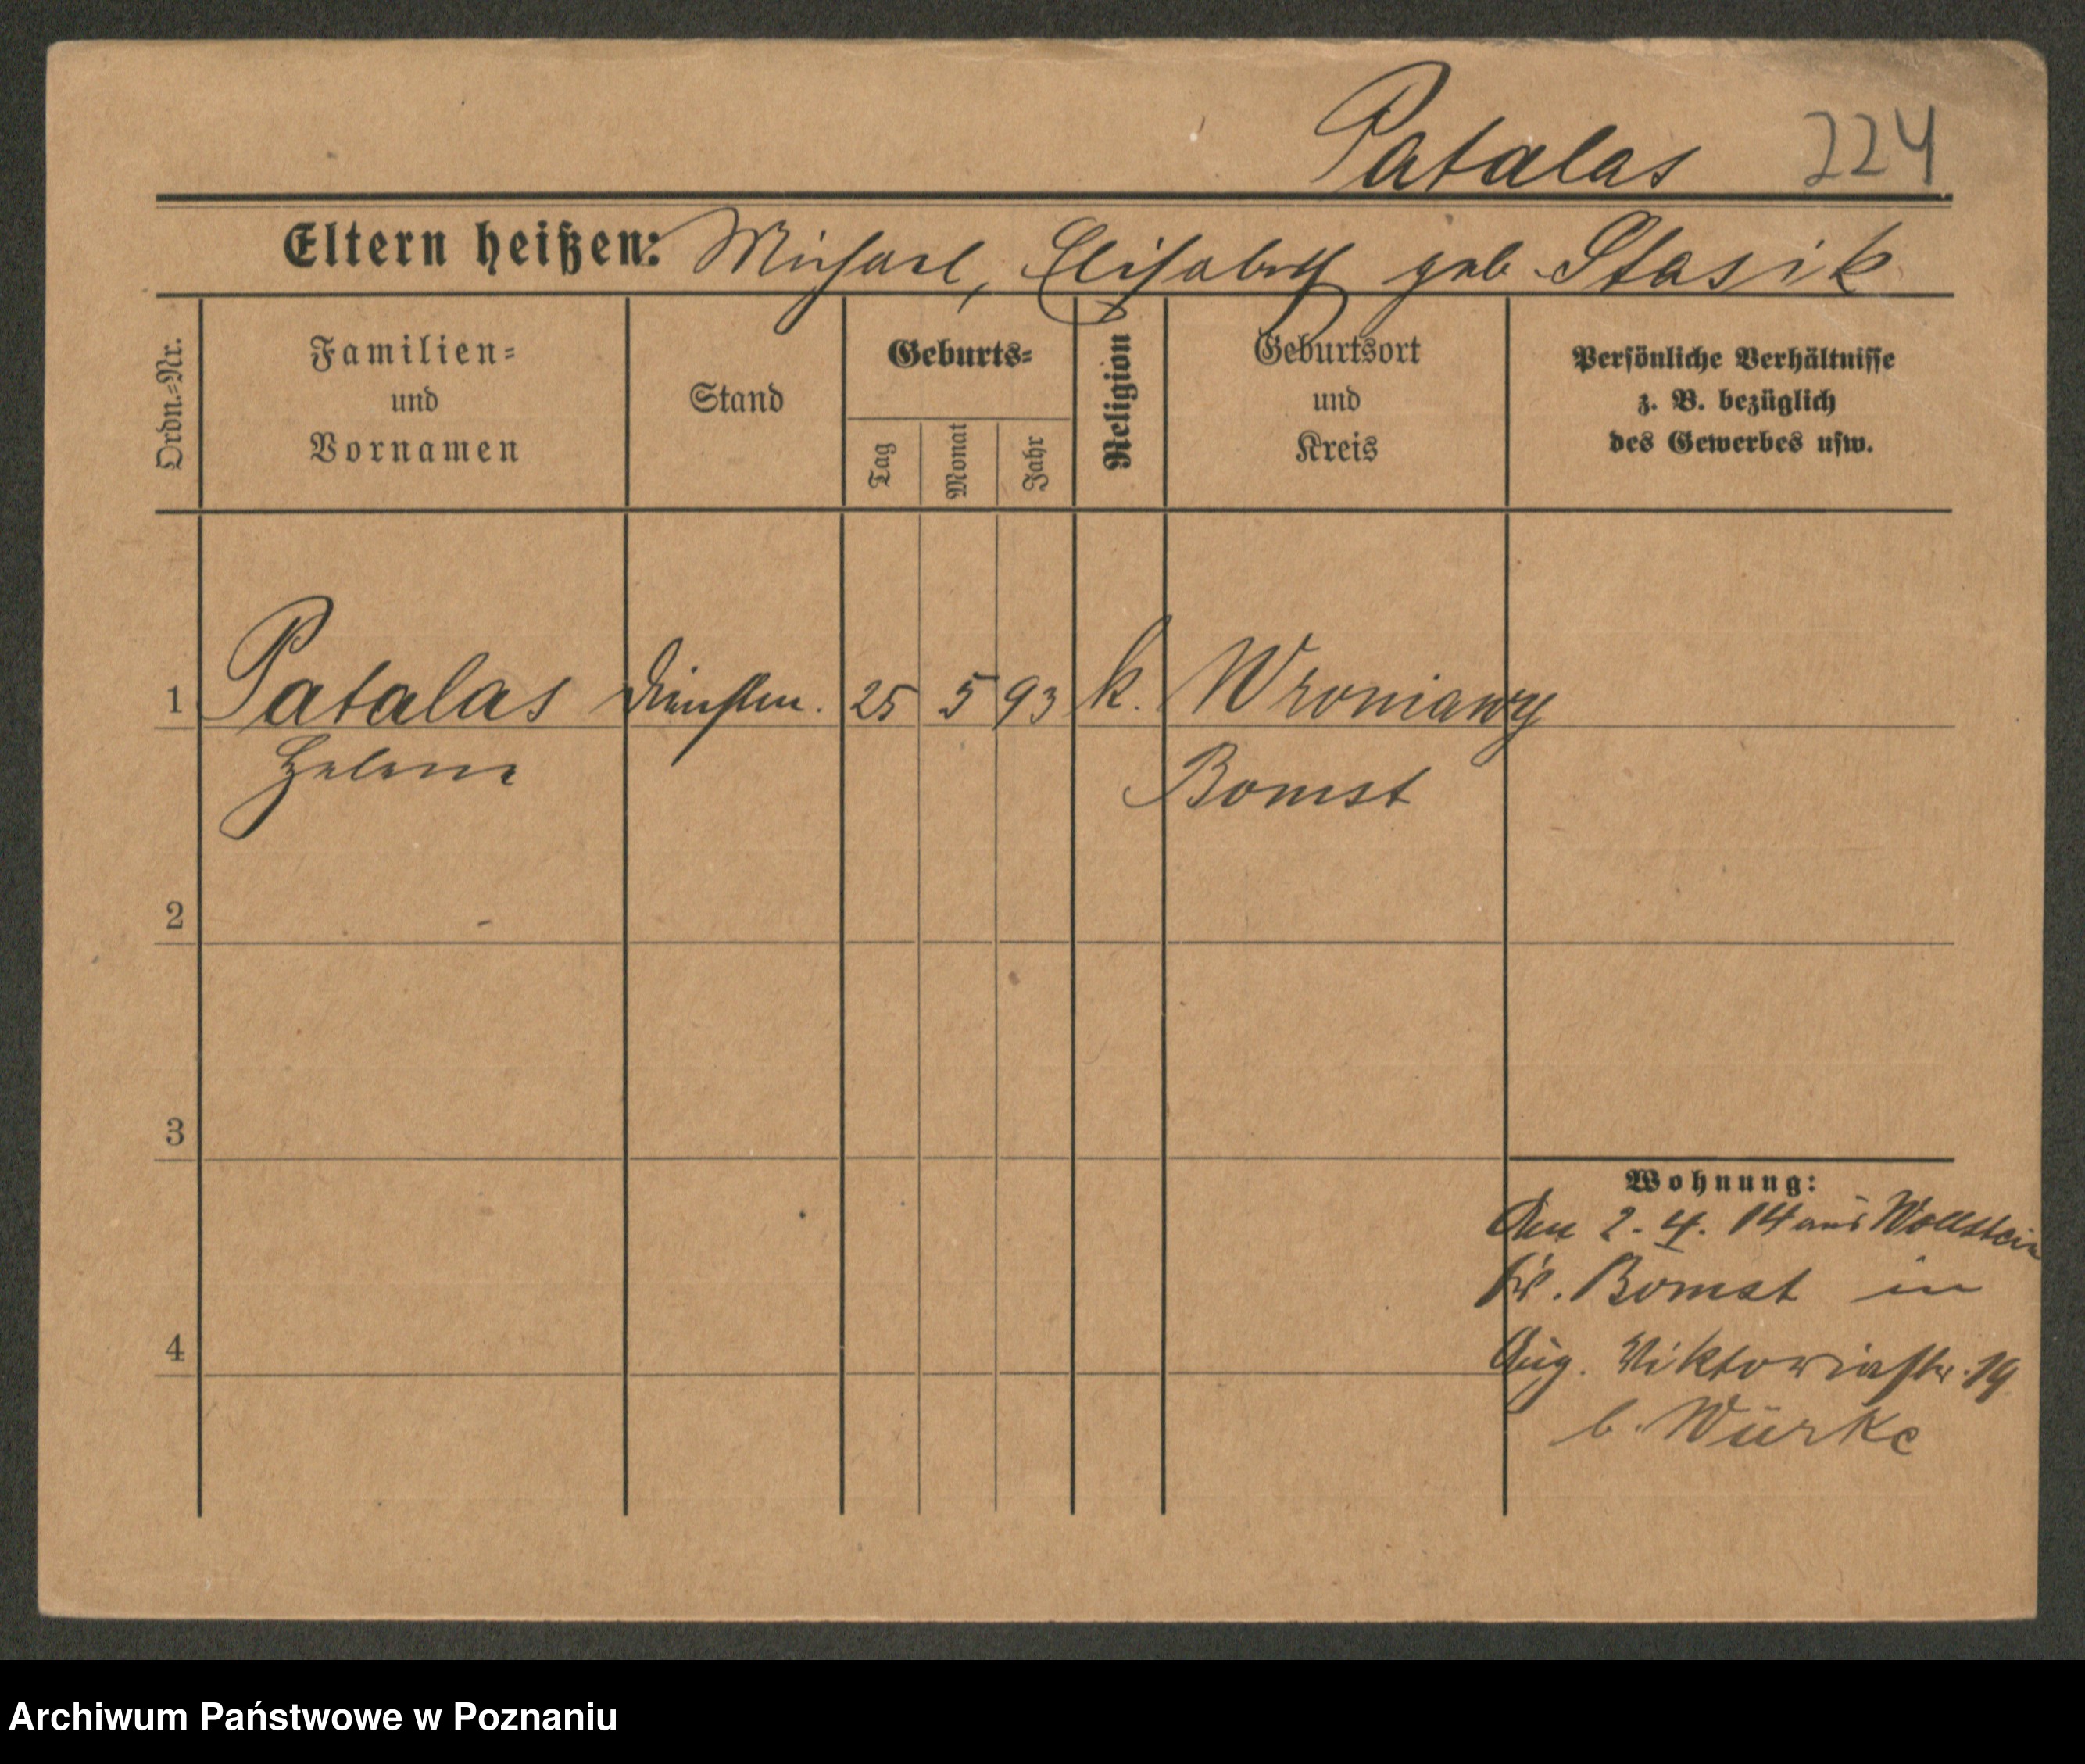 Patalas 224
Eltern heißen: Michael, Elisabeth geb. Stasik
Ordn.-Nr.
Familien-
und
Vornamen
Stand
Geburts-
Tag
Monat
Jahr
Religion
Geburtsort
und
Kreis
Persönliche Verhältnisse
z. B. bezüglich
des Gewerbes usw.
1 Patalas Dienstm. 25 5 93 k. Wroniawy
Helene Bomst
2
3
Wohnung:
Am 2. 4. 14 aus Wollstein
Kr. Bomst in
4
Aug. Viktoriastr. 19
b. Würke
Archiwum Państwowe w Poznaniu